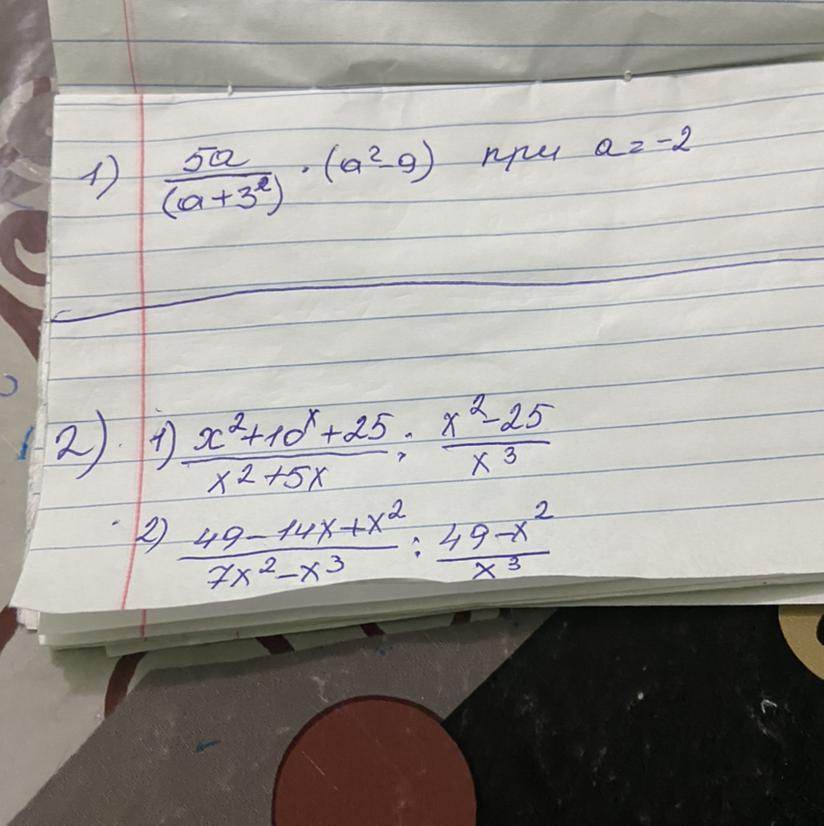 1) 5a/(a+3²) · (a²-9) при a=-2
2) 1) x²+10x+25/x²+5x : x²-25/x³
2) 49-14x+x²/7x²-x³ : 49-x²/x³